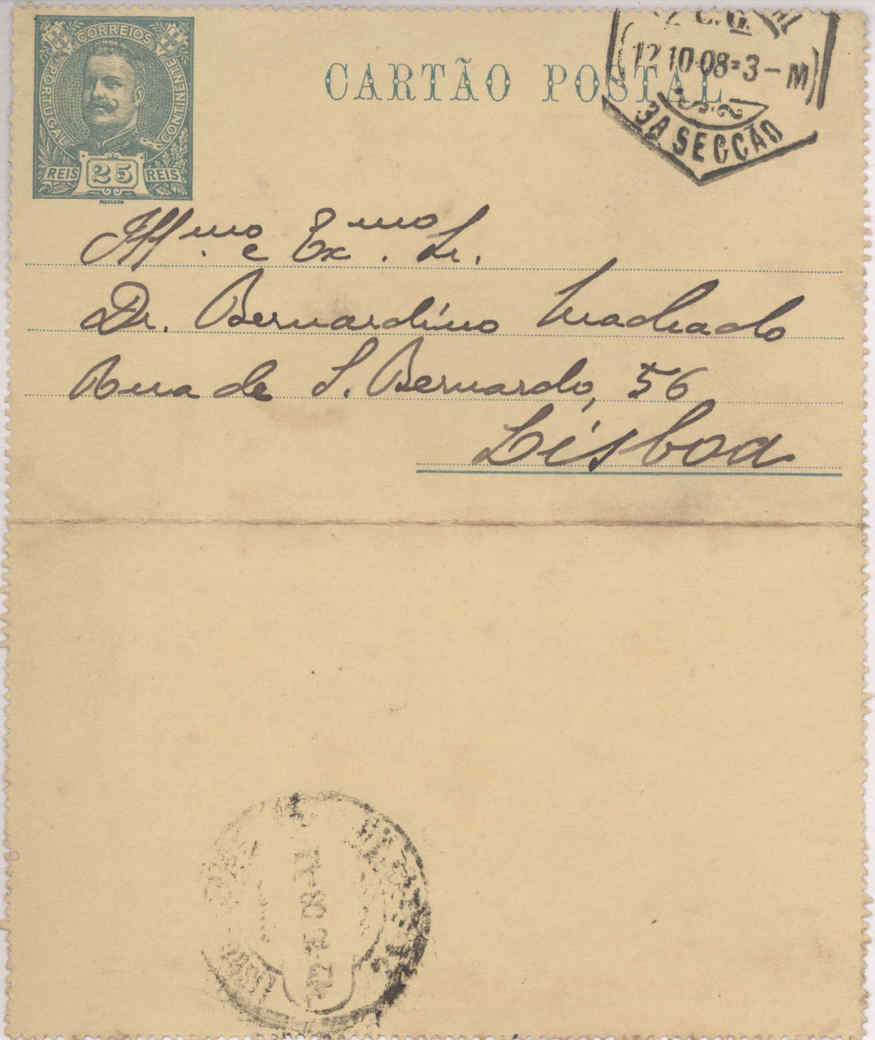 CORREIOS
PORTUGAL
CONTINENTE
REIS 25 REIS
CARTÃO POSTAL
C.G.
12 10-08=3-M
3A SECCÃO
Illmo. e Exmo. Sr.
Dr. Bernardino Machado
Rua de S. Bernardo, 56
Lisboa